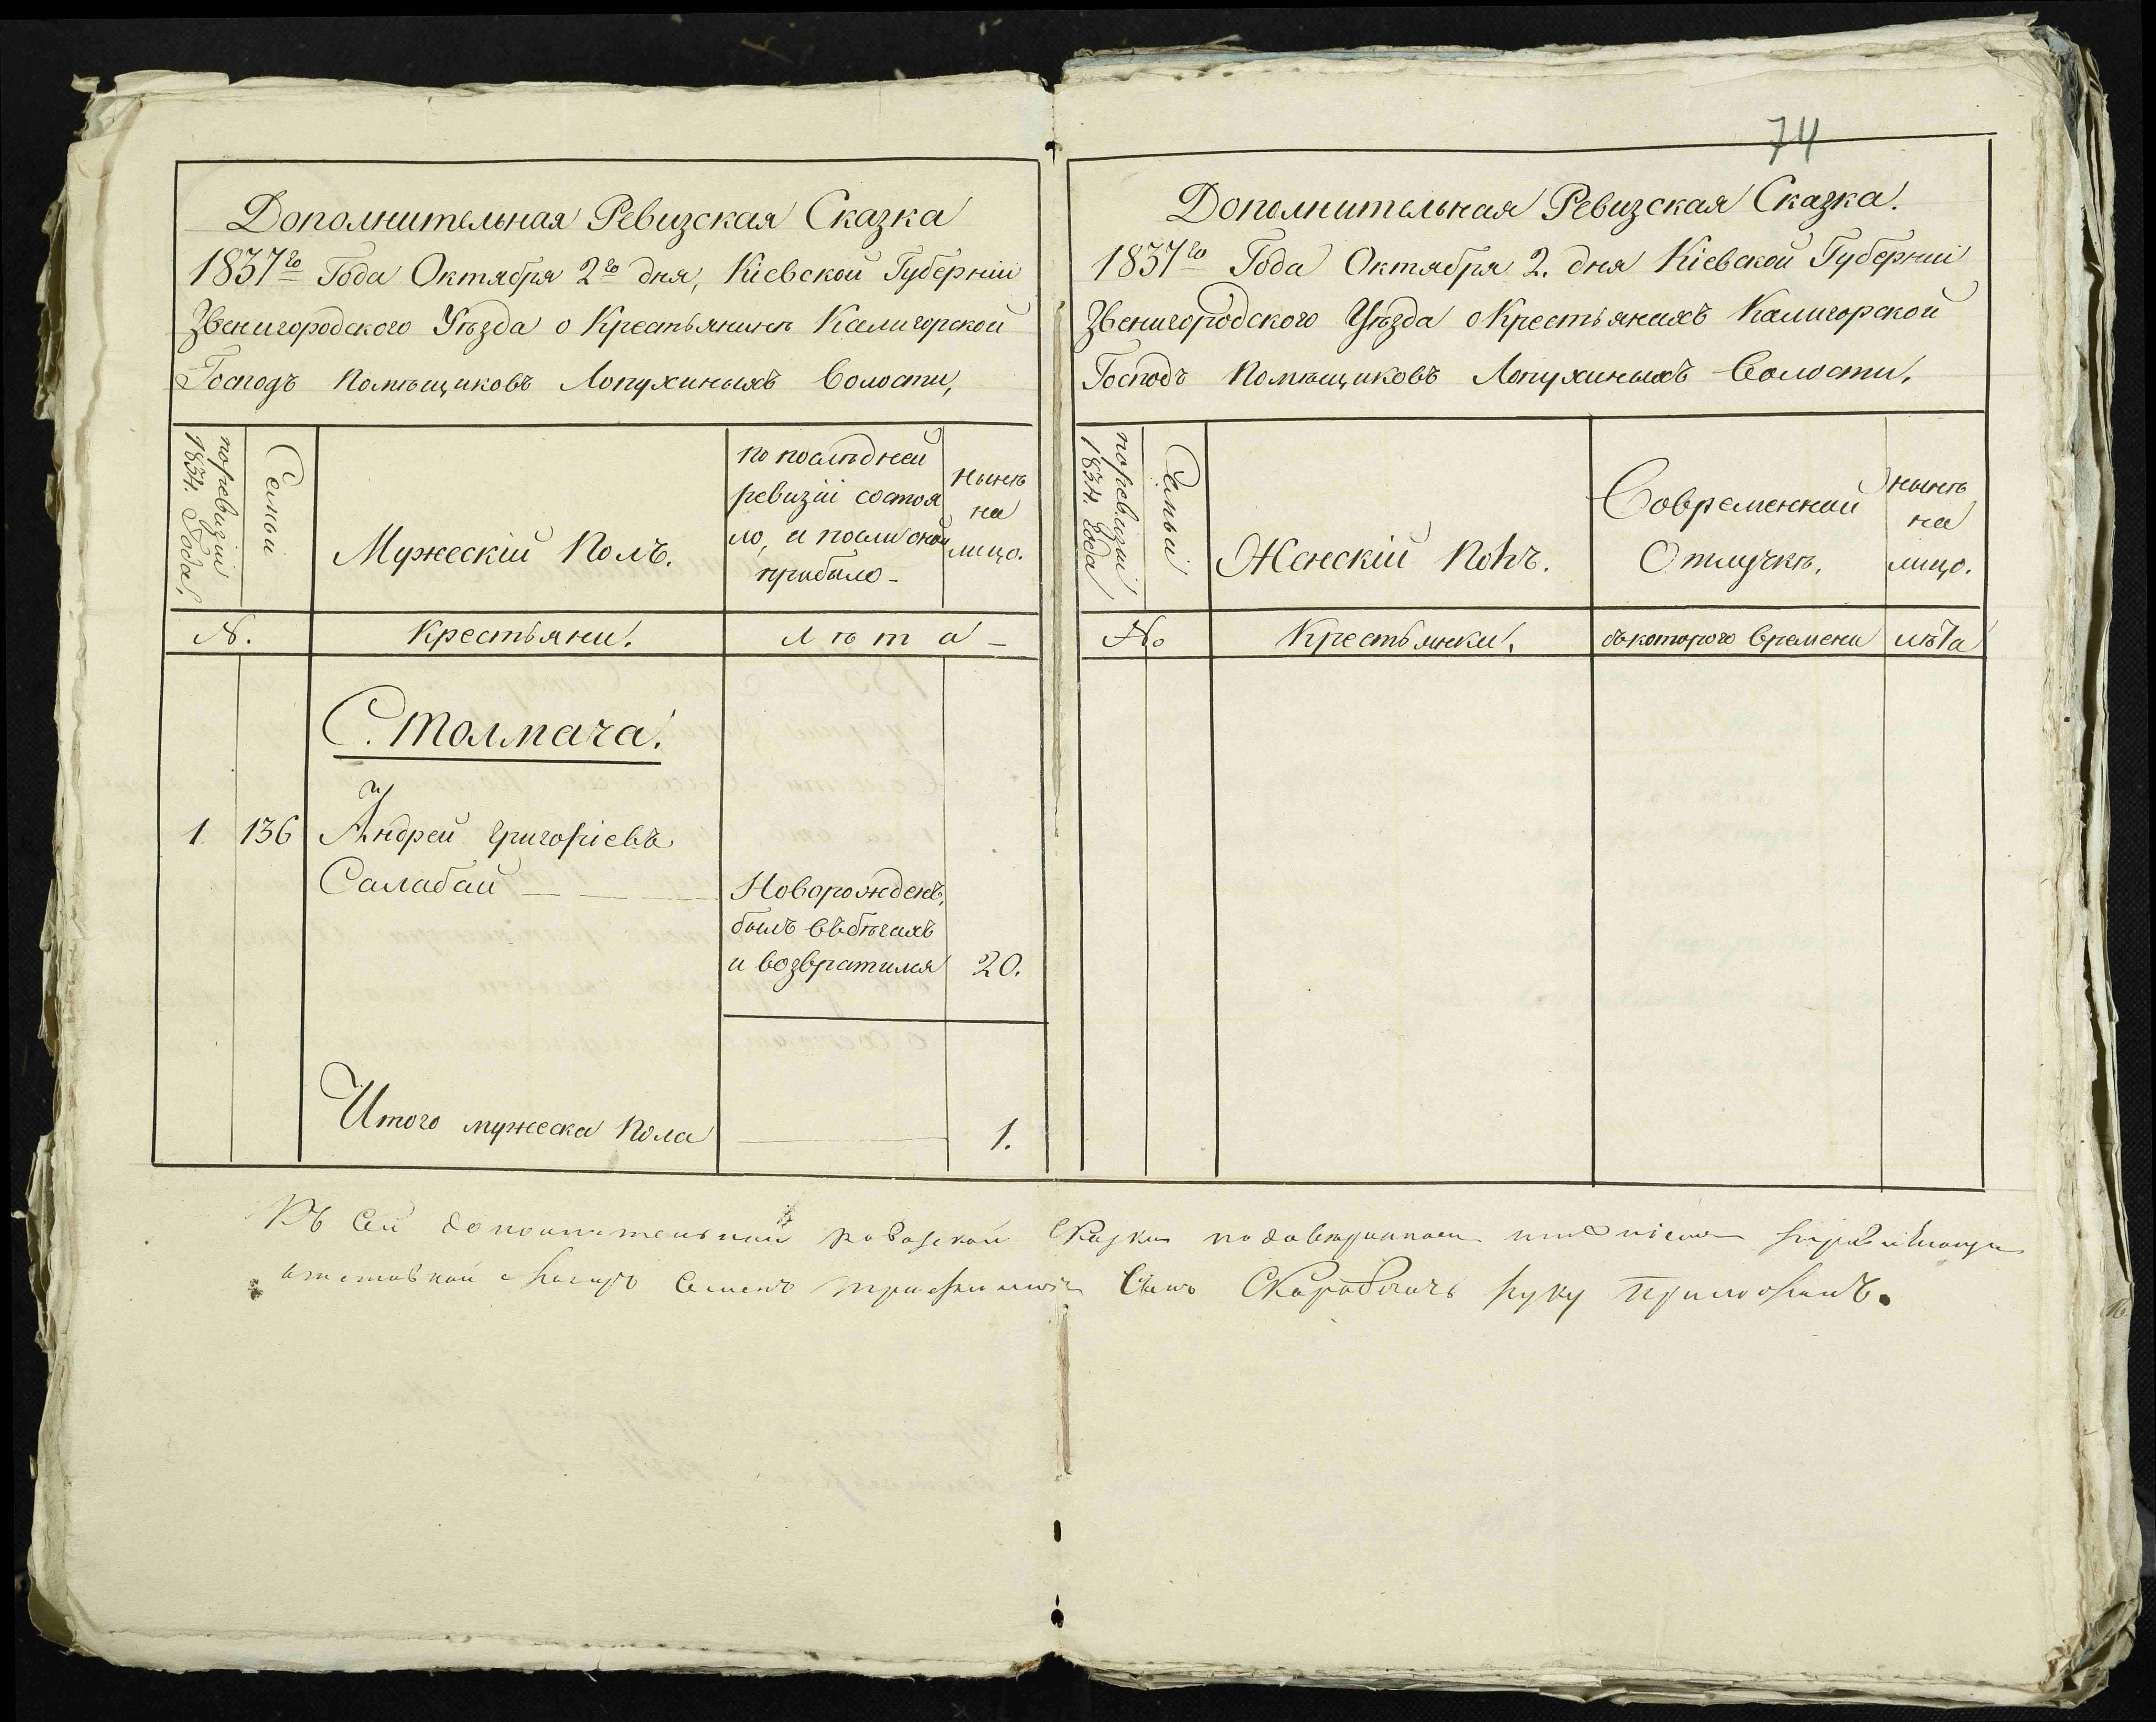 74
Дополнительная Ревизская Сказка
1837го Года Октября 2го дня, Кіевской Губерніи
Звенигородского Уѣзда о Крестьянинѣ Калигорской
Господъ Помѣщиковъ Лопухиныхъ Волости,
по ревизіи 1834. Года.
Семьи
Мужескій Полъ.
по послѣдней
ревизіи состоя
ло, и после оной
прибыло-
нынѣ
на
лицо.
N.
Крестьяни.
Лѣта-
С. Толмача.
1 136 Андрей Григоріевъ
Салабай
Новорожденъ,
былъ въ бѣгахъ
и возвратился 20.
Итого мужеска пола 1.
Дополнительная Ревизская Сказка.
1837го Года Октября 2. дня Кіевской Губерніи
Звенигородского Уѣзда о Крестьянахъ Калигорской
Господъ Помѣщиковъ Лопухиныхъ Волости.
по ревизіи 1834. года
Семьи
Женскій Полъ.
Современной
Отлучкѣ.
нынѣ
на
лицо.
No
Крестьянки.
съ которого времени
лѣта
Къ сей дополнительной ревизской сказки
Семенъ сынъ руку приложилъ.